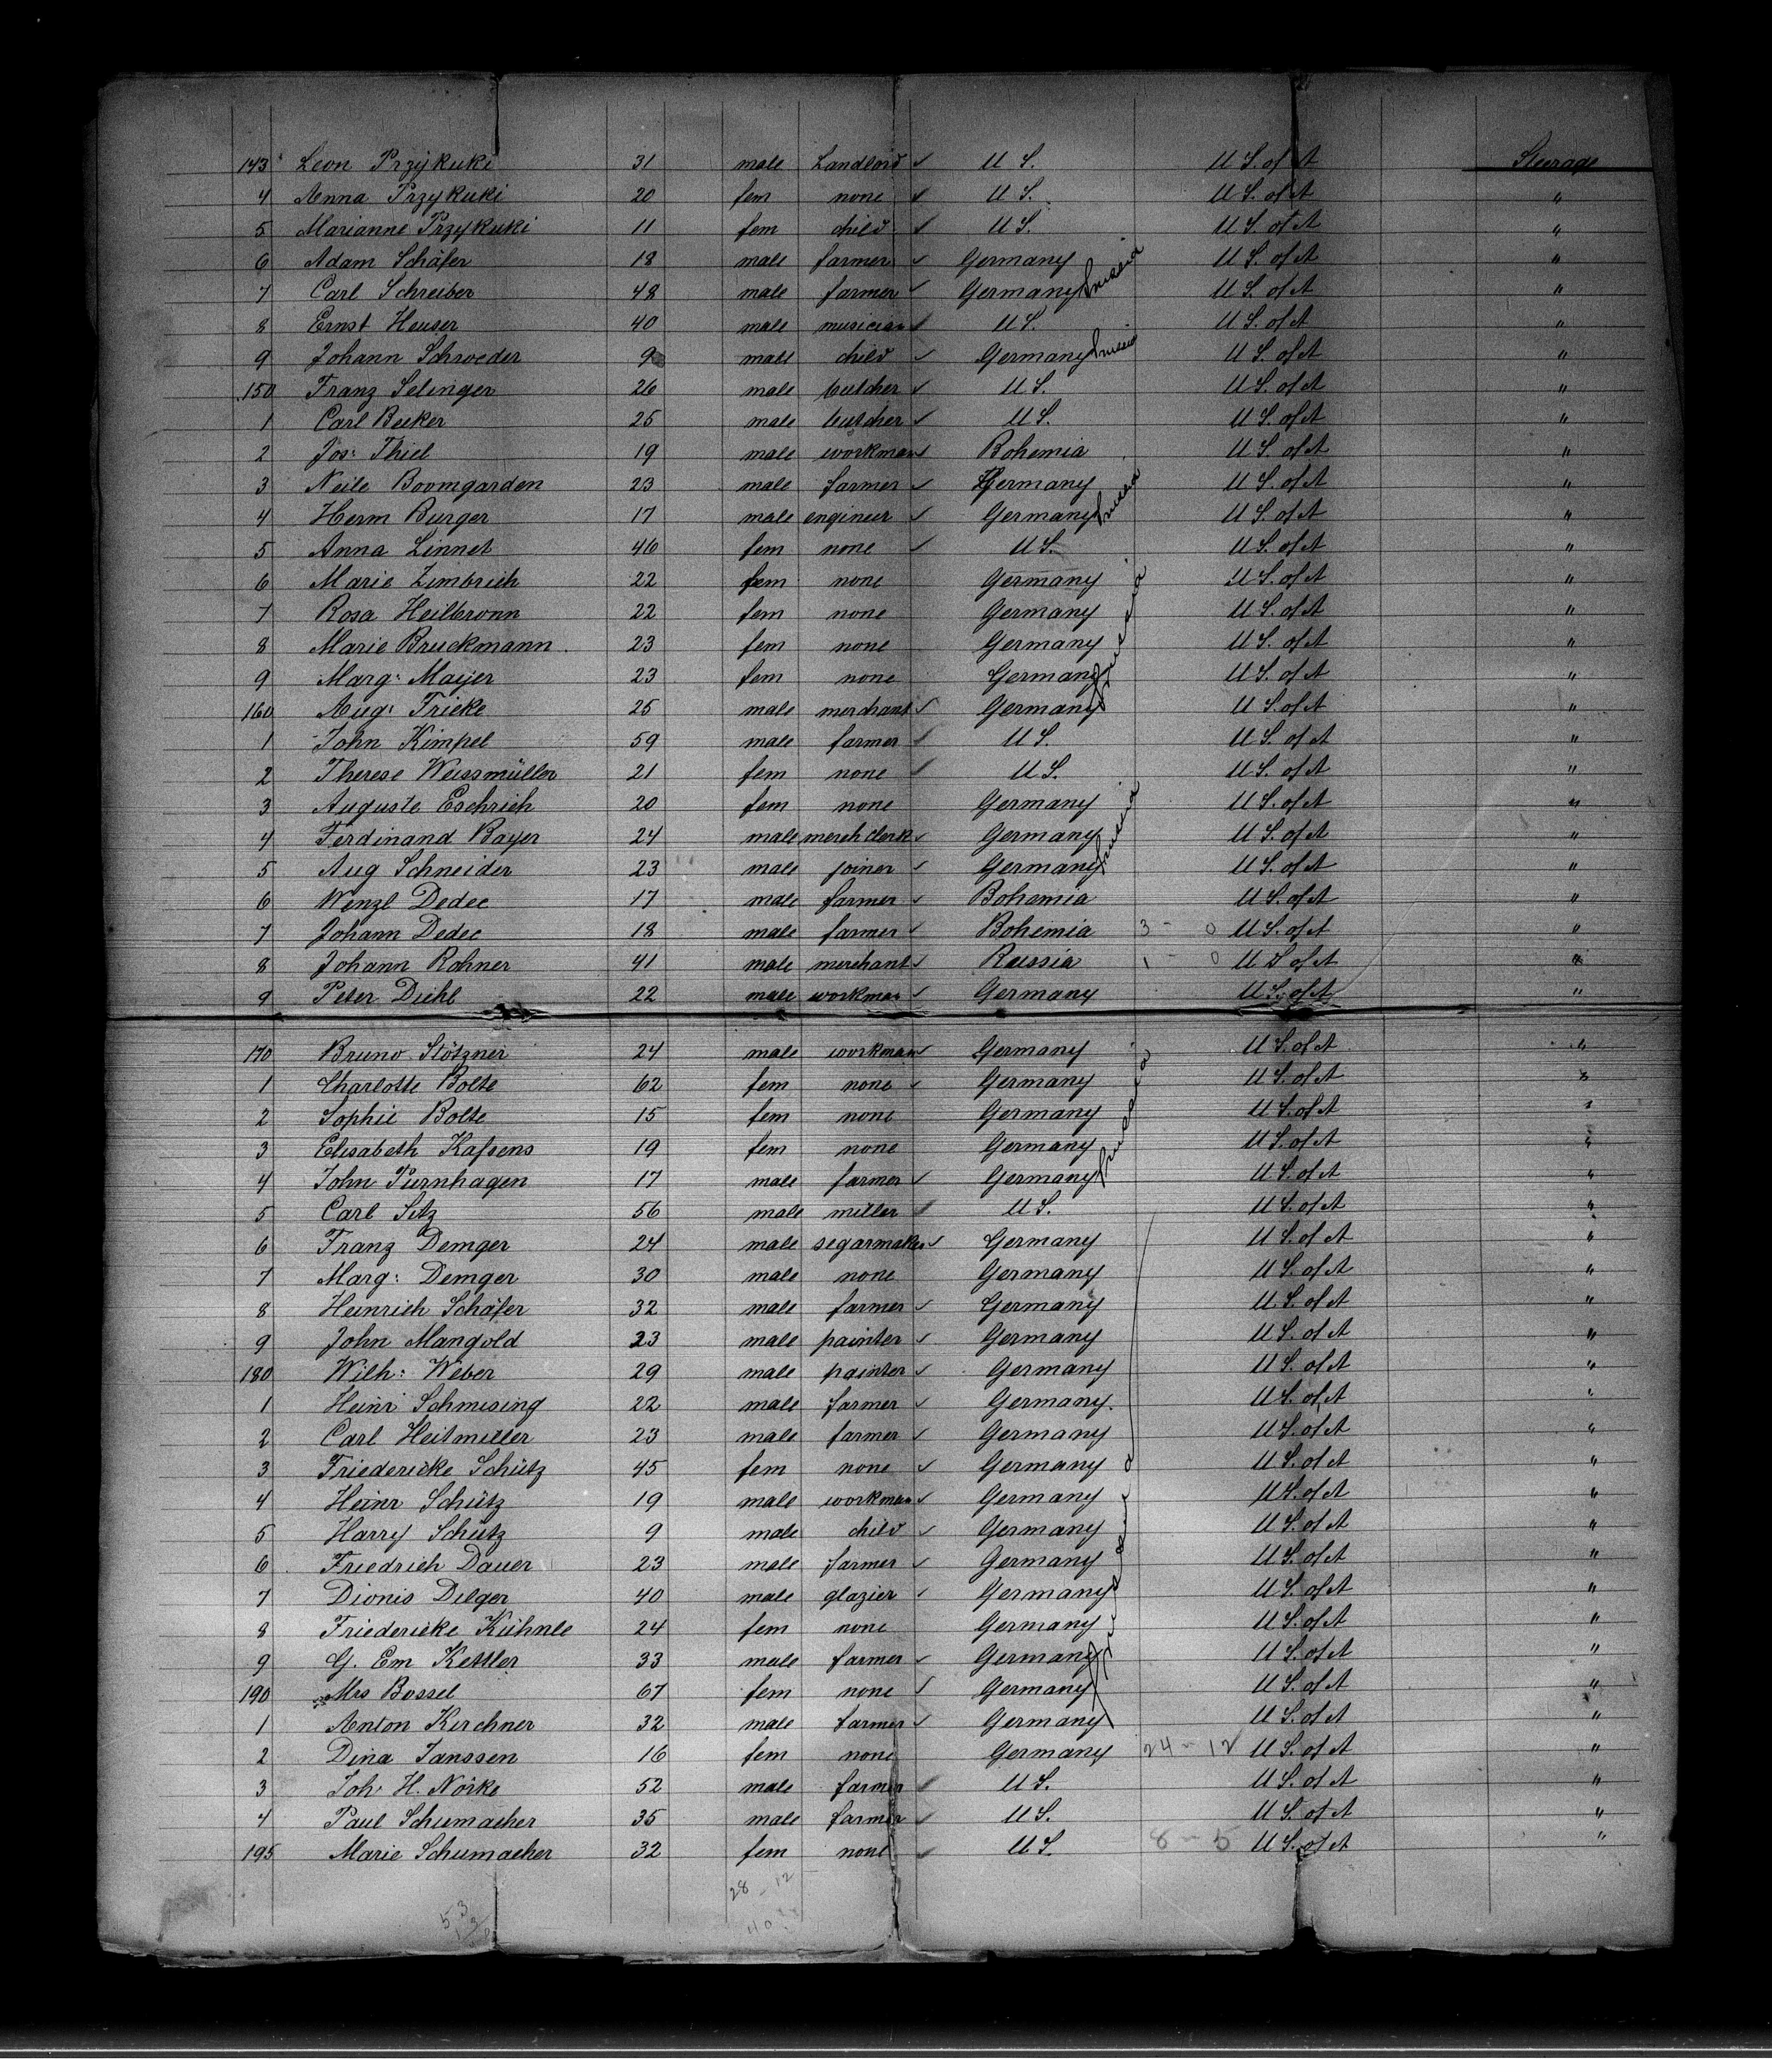 143 Leon Przykuki 31 male Landlord ✓ U S. U S. of A Steerage
4 Anna Przykuki 20 fem none ✓ U S. U S. of A "
5 Marianne Przykuki 11 fem child ✓ U S. U S. of A "
6 Adam Schäfer 18 male farmer ✓ Germany U S. of A "
7 Carl Schreiber 48 male farmer ✓ Germany Prussia U S. of A "
8 Ernst Heuser 40 male musician ✓ U S. U S. of A "
9 Johann Schroeder 9 male child ✓ Germany Prussia U S. of A "
150 Franz Selinger 26 male butcher ✓ U S. U S. of A "
1 Carl Becker 25 male butcher ✓ U S. U S. of A "
2 Jos: Thiel 19 male workman ✓ Bohemia U S. of A "
3 Neile Boomgarden 23 male farmer ✓ Germany U S. of A "
4 Herm Burger 17 male engineer ✓ Germany Prussia U S. of A "
5 Anna Linnet 46 fem none ✓ U S. U S. of A "
6 Marie Zimbrich 22 fem none Germany U S. of A "
7 Rosa Heilbronn 22 fem none Germany U S. of A "
8 Marie Bruckmann 23 fem none Germany U S. of A "
9 Marg: Mayer 23 fem none Germany Prussia U S. of A "
160 Aug: Fricke 25 male merchant ✓ Germany U S. of A "
1 John Kimpel 59 male farmer ✓ U S. U S. of A "
2 Therese Weissmüller 21 fem none ✓ U S. U S. of A "
3 Auguste Eschrich 20 fem none Germany U S. of A "
4 Ferdinand Bayer 24 male merch clerk ✓ Germany U S. of A "
5 Aug Schneider 23 male joiner ✓ Germany Prussia U S. of A "
6 Wenzl Dedec 17 male farmer ✓ Bohemia U S. of A "
7 Johann Dedec 18 male farmer ✓ Bohemia 3 - 0 U S. of A "
8 Johann Rohner 41 male merchant ✓ Russia 1 - 0 U S of A "
9 Peter Diehl 22 male workman ✓ Germany U S. of A "
170 Bruno Stötzner 24 male workman ✓ Germany U S. of A "
1 Charlotte Bolte 62 fem none ✓ Germany U S. of A "
2 Sophie Bolte 15 fem none Germany U S. of A "
3 Elisabeth Kassens 19 fem none Germany U S. of A "
4 John Purnhagen 17 male farmer ✓ Germany Prussia U S. of A "
5 Carl Sitz 56 male miller ✓ U S. U S. of A "
6 Franz Demger 24 male segarmaker ✓ Germany U S. of A "
7 Marg: Demger 30 male none Germany U S. of A "
8 Heinrich Schäfer 32 male farmer ✓ Germany U S. of A "
9 John Mangold 23 male painter ✓ Germany U S. of A "
180 Wilh: Weber 29 male painter ✓ Germany U S. of A "
1 Heinr Schmising 22 male farmer ✓ Germany. U S. of A "
2 Carl Heitmuller 23 male farmer ✓ Germany U S. of A "
3 Friedericke Schütz 45 fem none ✓ Germany U S. of A "
4 Heinr Schütz 19 male workman ✓ Germany U S. of A "
5 Harry Schütz 9 male child ✓ Germany U S. of A "
6 Friedrich Dauer 23 male farmer ✓ Germany U S. of A "
7 Dionis Dilger 40 male glazier ✓ Germany U S. of A "
8 Friedericke Kühnle 24 fem none Germany U S. of A "
9 G. Em Kettler 33 male farmer ✓ Germany Prussia U S. of A "
190 Mrs Bossel 67 fem none ✓ Germany U S. of A "
1 Anton Kirchner 32 male farmer ✓ Germany U S. of A "
2 Dina Janssen 16 fem none Germany 24 - 12 U S. of A "
3 Joh. H. Nörke 52 male farmer ✓ U S. U S. of A "
4 Paul Schumacher 35 male farmer ✓ U S. U S. of A "
195 Marie Schumacher 32 fem none ✓ U S. 8 - 5 U S. of A "
28 - 12
53
40